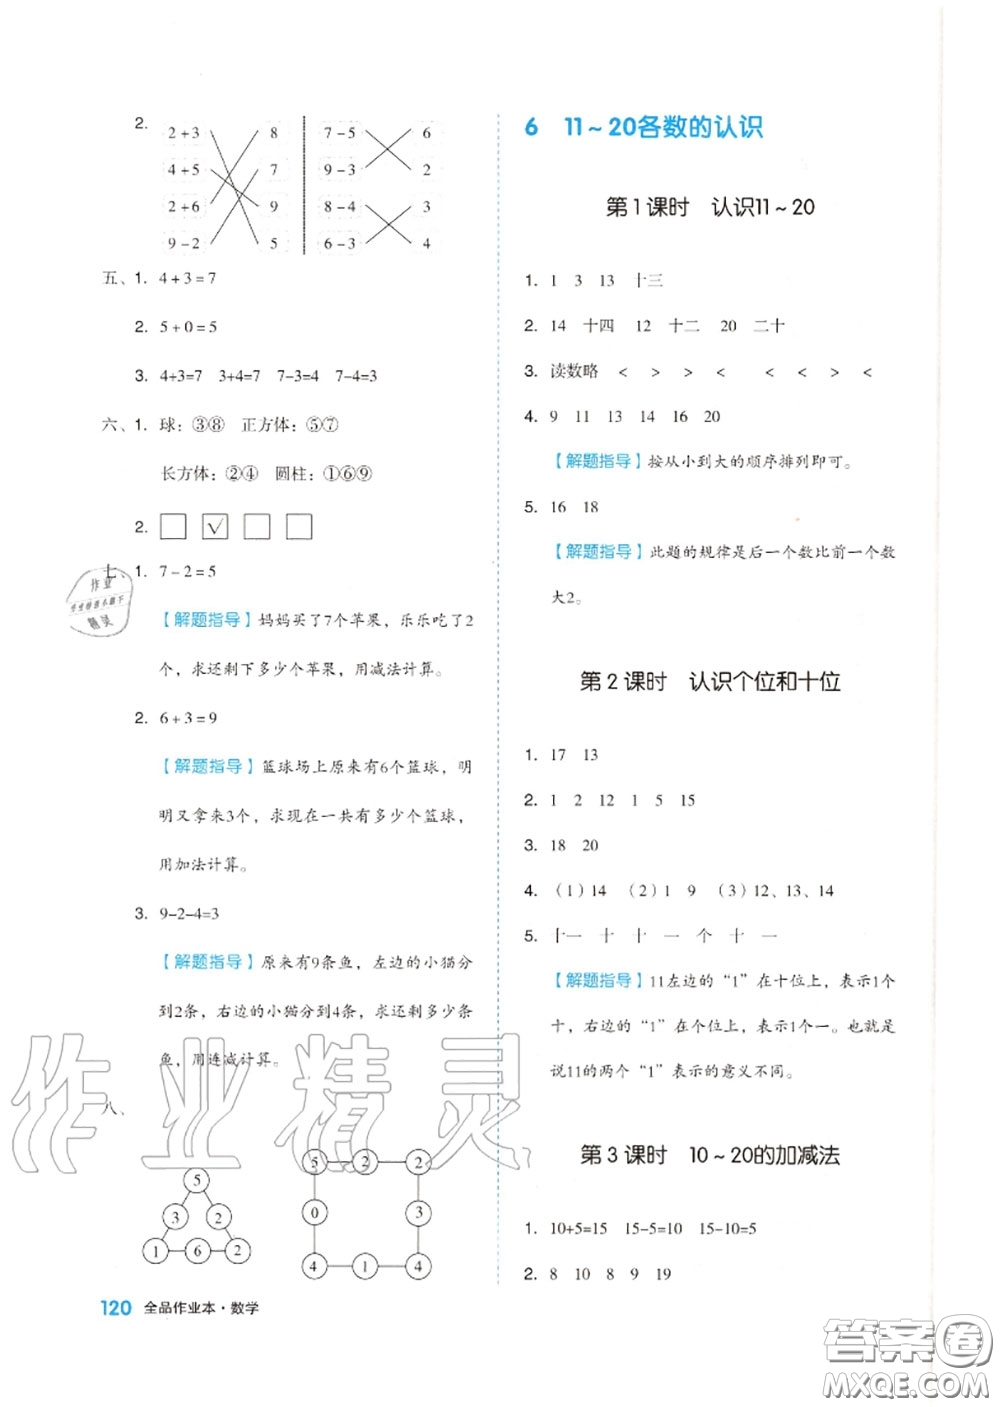 2.
2+3 8 7-5 6
4+5 7 9-3 2
2+6 9 8-4 3
9-2 5 6-3 4
五、1. 4+3=7
2. 5+0=5
3. 4+3=7 3+4=7 7-3=4 7-4=3
六、1. 球：③⑧ 正方体：⑤⑦
长方体：②④ 圆柱：①⑥⑨
2. □ ☑ □ □
七、1. 7-2=5
【解题指导】妈妈买了7个苹果，乐乐吃了2
个，求还剩下多少个苹果，用减法计算。
2. 6+3=9
【解题指导】篮球场上原来有6个篮球，明
明又拿来3个，求现在一共有多少个篮球，
用加法计算。
3. 9-2-4=3
【解题指导】原来有9条鱼，左边的小猫分
到2条，右边的小猫分到4条，求还剩多少条
鱼，用连减计算。
八、
5
3 2
1 6 2
5 2 2
0 3
4 1 4
120 全品作业本·数学
6 11~20各数的认识
第1课时 认识11~20
1. 1 3 13 十三
2. 14 十四 12 十二 20 二十
3. 读数略 < > > < < < > <
4. 9 11 13 14 16 20
【解题指导】按从小到大的顺序排列即可。
5. 16 18
【解题指导】此题的规律是后一个数比前一个数
大2。
第2课时 认识个位和十位
1. 17 13
2. 1 2 12 1 5 15
3. 18 20
4. （1）14 （2）1 9 （3）12、13、14
5. 十一 十 十 一 个 十 一
【解题指导】11左边的“1”在十位上，表示1个
十，右边的“1”在个位上，表示1个一。也就是
说11的两个“1”表示的意义不同。
第3课时 10~20的加减法
1. 10+5=15 15-5=10 15-10=5
2. 8 10 8 9 19
作业精灵
作业
精灵
答案圈
MXQE.COM